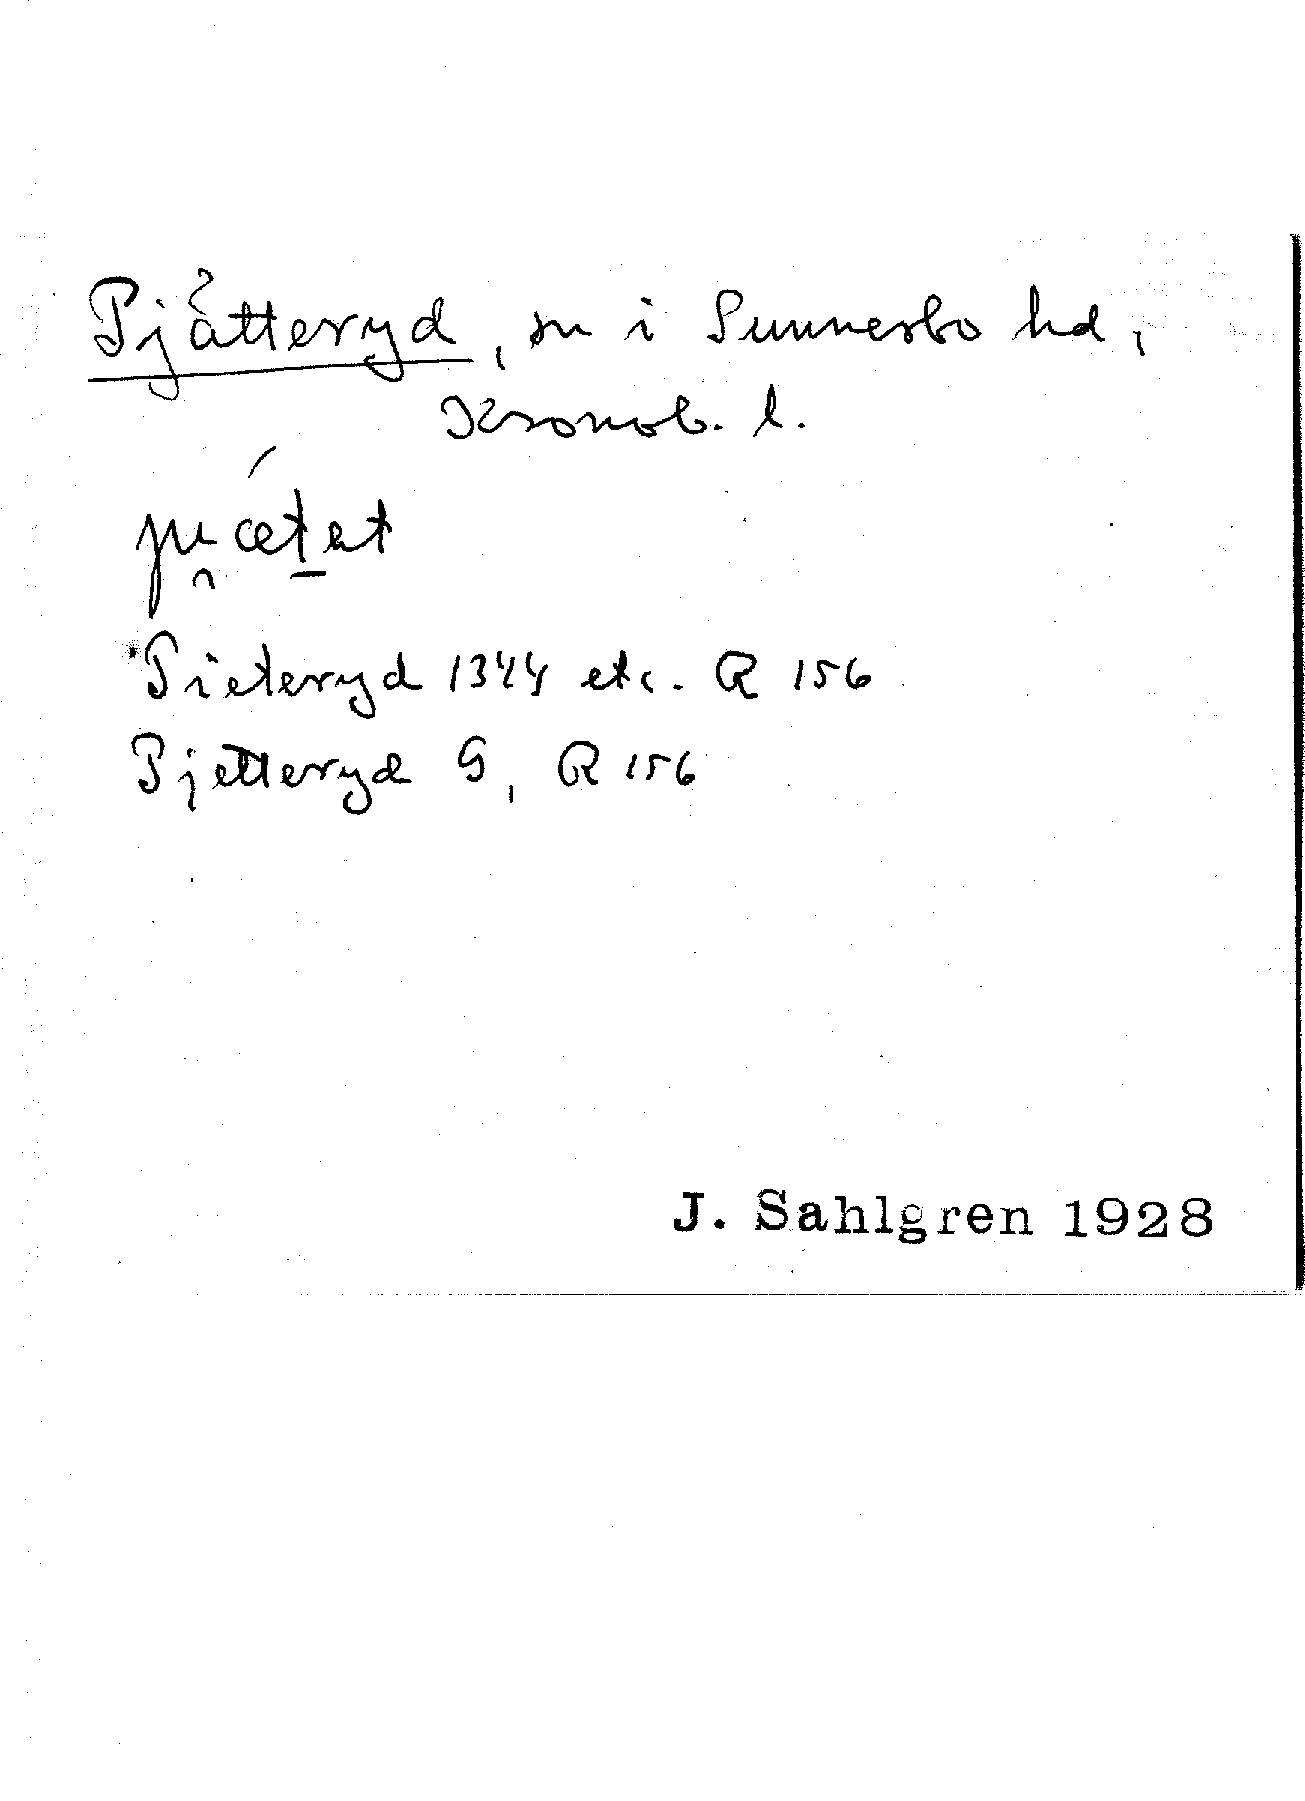 Pjätteryd, sn i Sunnerbo hd,
Kronob. l.
Pieteryd 1344 etc. R 156
Pjetteryd G, R 156
J. Sahlgren 1928